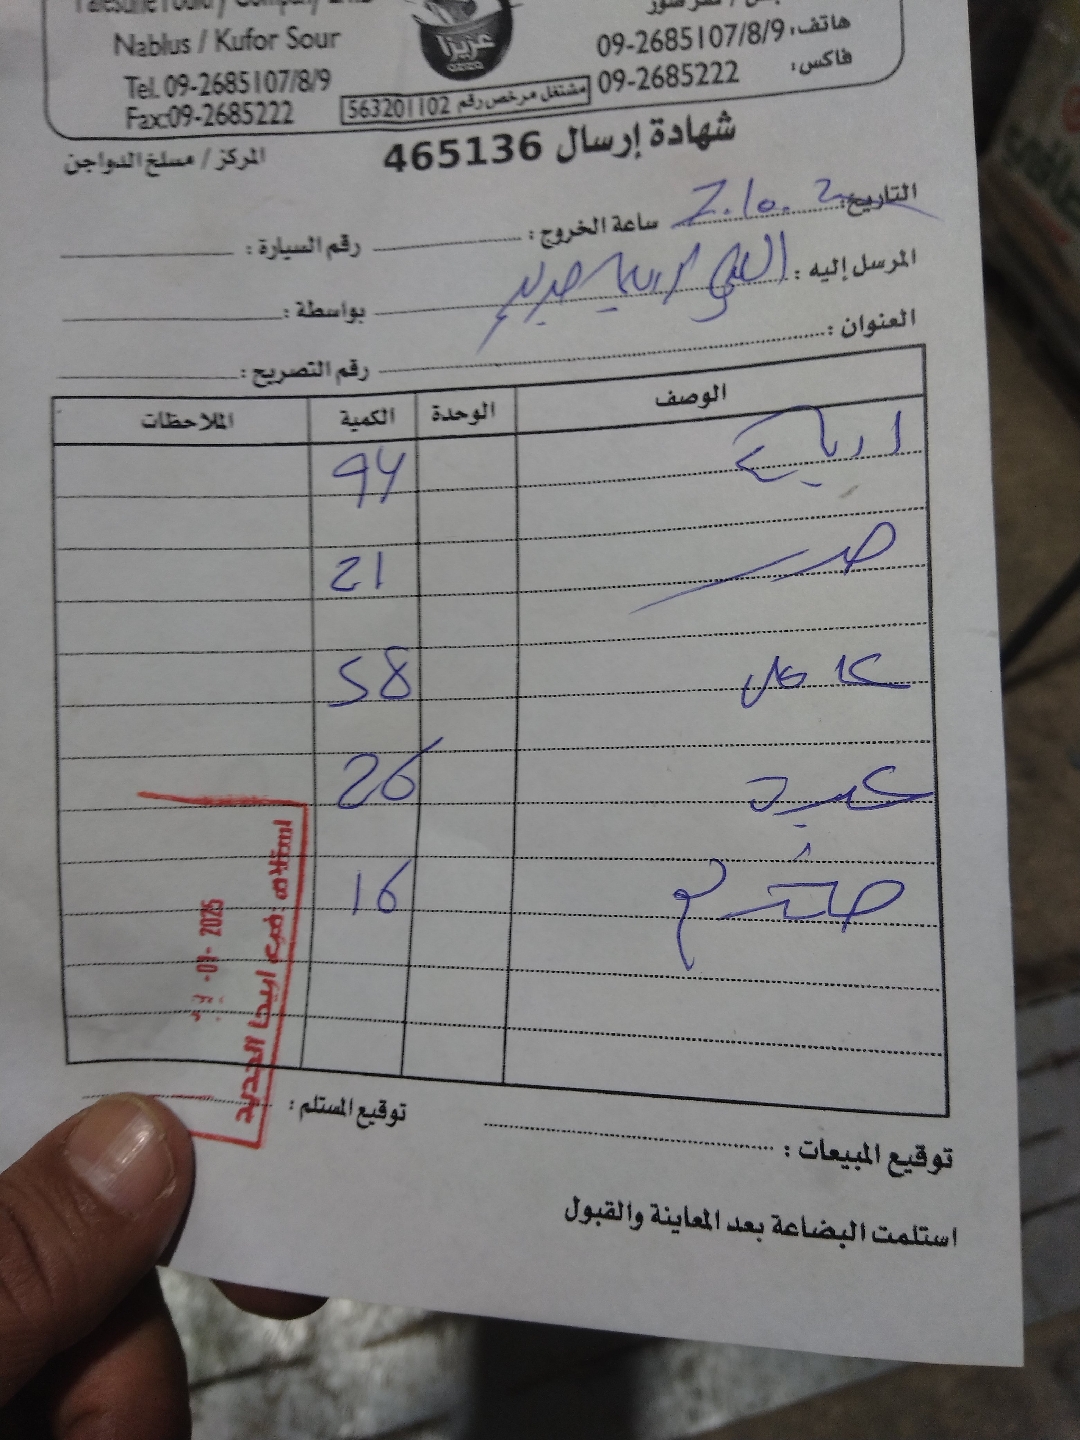 Palestine Poultry Company Ltd
Nablus / Kufor Sour
Tel. 09-2685107/8/9
Fax:09-2685222
عزيزا
مشتغل مرخص رقم 563201102
هاتف: 09-2685107/8/9
فاكس: 09-2685222
شهادة إرسال 465136
المركز / مسلخ الدواجن
التاريخ: 2.10.2 ساعة الخروج: رقم السيارة:
المرسل إليه: بواسطة:
العنوان: رقم التصريح:
الوصف الوحدة الكمية الملاحظات
ارباع 94
صدر 21
كامل 58
كبد 26
16
استلام فرع اريحا الجديد
-03- 2025
توقيع المبيعات: توقيع المستلم:
استلمت البضاعة بعد المعاينة والقبول